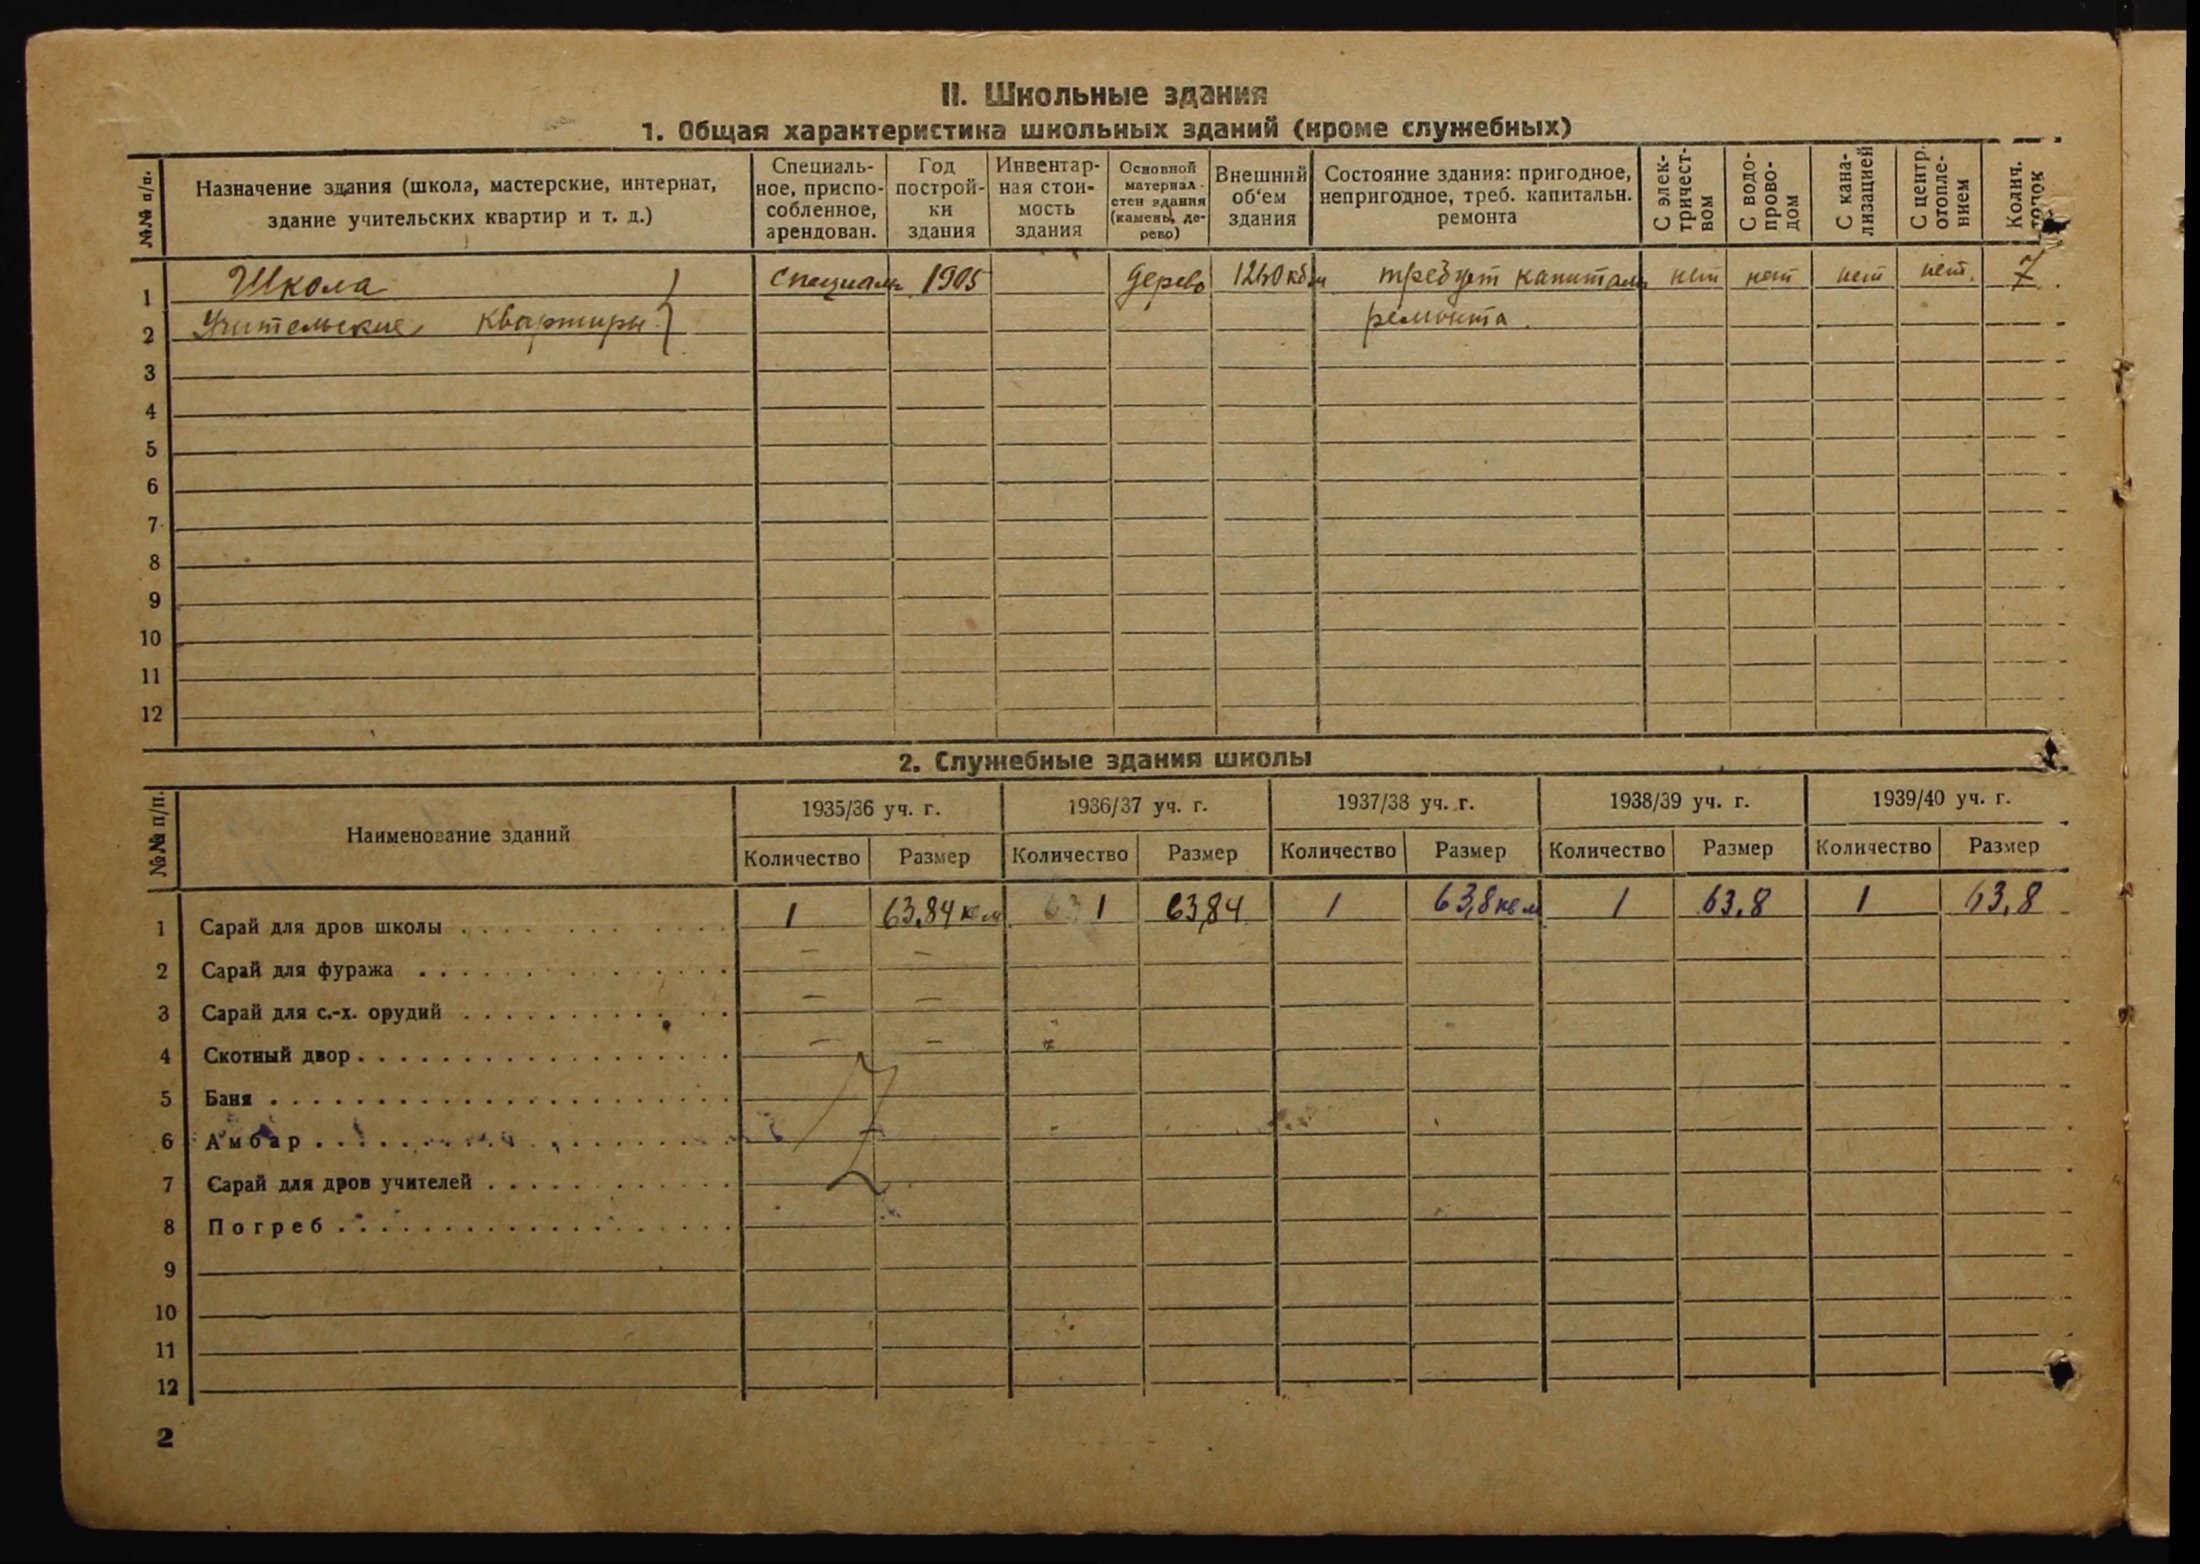 II. Школьные здания
1. Общая характеристика школьных зданий (кроме служебных)
№№ п/п. Назначение здания (школа, мастерские, интернат, здание учительских квартир и т. д.) Специаль-ное, приспо-собленное, арендован. Год построй-ки здания Инвентар-ная стои-мость здания Основной материал стен здания (камень, де-рево) Внешний об‘ем здания Состояние здания: пригодное, непригодное, треб. капитальн. ремонта С элек-тричест-вом С водо-прово-дом С кана-лизацией С центр. отопле-нием Колич. топок
1 Школа специальн 1905 дерево 1240 кб м требует капитальн нет нет нет нет. 7
2 Учительские квартиры ремонта.
3
4
5
6
7
8
9
10
11
12
2. Служебные здания школы
№№ п/п. Наименование зданий 1935/36 уч. г. 1936/37 уч. г. 1937/38 уч. г. 1938/39 уч. г. 1939/40 уч. г.
Количество Размер Количество Размер Количество Размер Количество Размер Количество Размер
1 Сарай для дров школы 1 63,84 кв м 1 63,84 1 63,8 кв м 1 63,8 1 63,8
2 Сарай для фуража — —
3 Сарай для с.-х. орудий — —
4 Скотный двор — —
5 Баня
6 Амбар
7 Сарай для дров учителей
8 Погреб
9
10
11
12
2